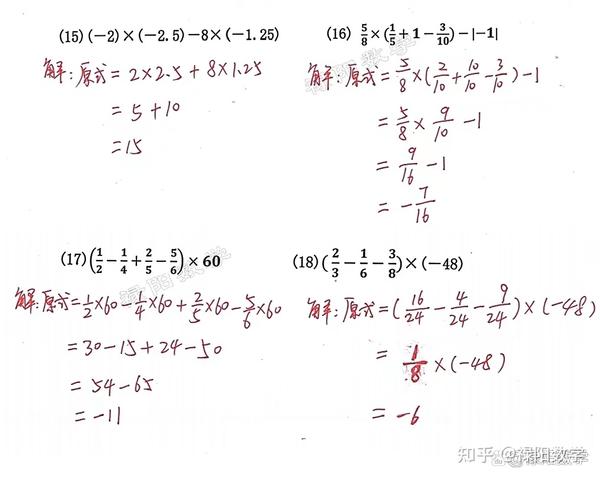 (15) (−2)×(−2.5)−8×(−1.25)
解:原式=2×2.5+8×1.25
=5+10
=15
(16) 5/8×(1/5+1−3/10)−|−1|
解:原式=5/8×(2/10+10/10−3/10)−1
=5/8×9/10−1
=9/16−1
=−7/16
(17) (1/2−1/4+2/5−5/6)×60
解:原式=1/2×60−1/4×60+2/5×60−5/6×60
=30−15+24−50
=54−65
=−11
(18) (2/3−1/6−3/8)×(−48)
解:原式=(16/24−4/24−9/24)×(−48)
=1/8×(−48)
=−6
知乎 @禄阳数学